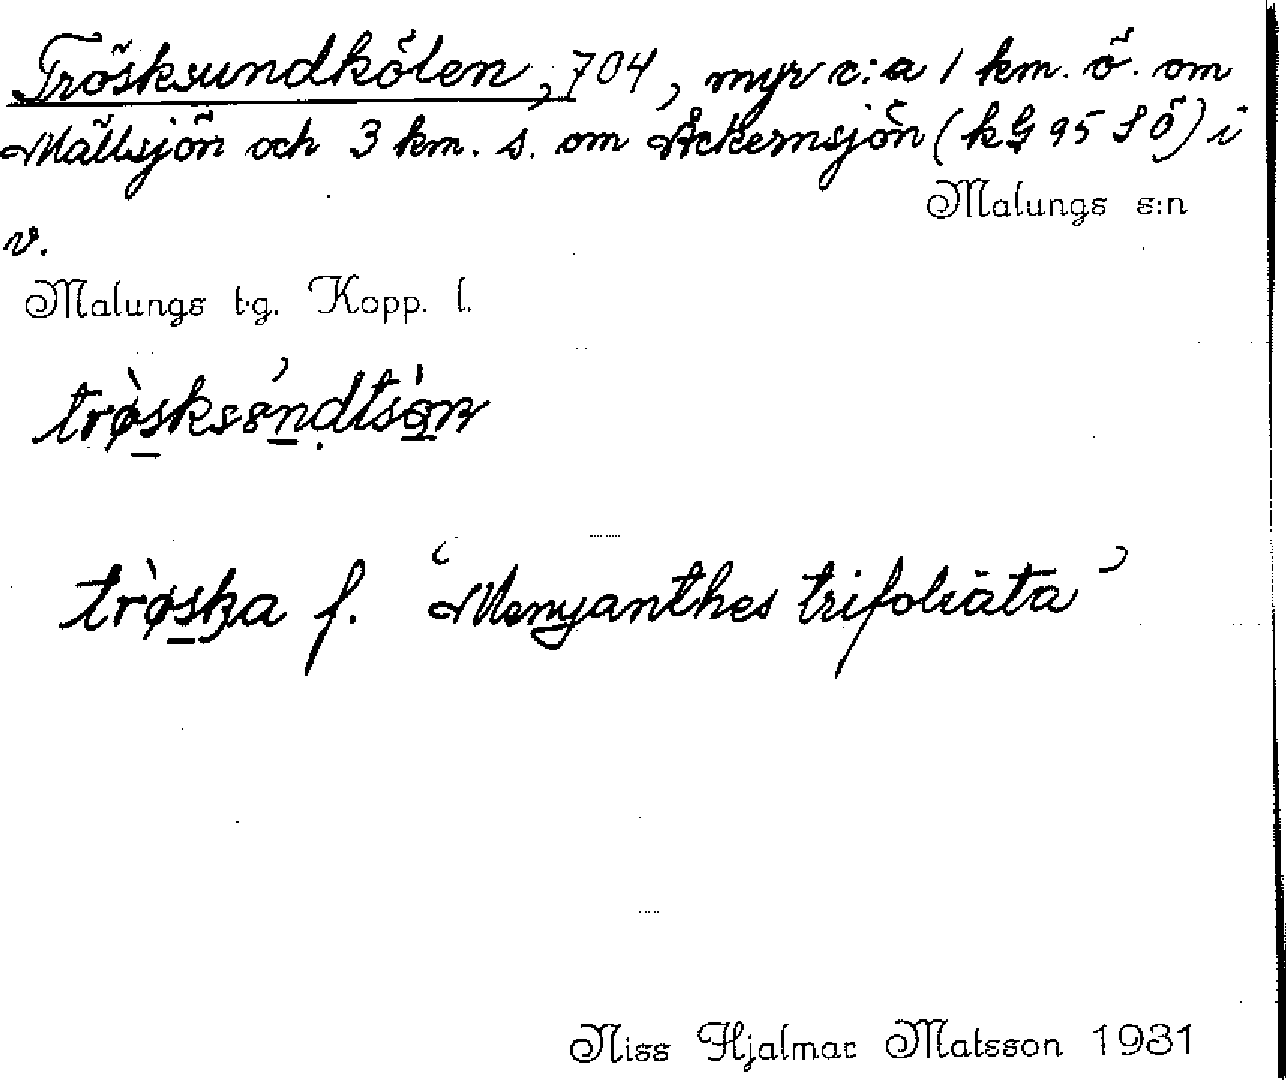 Tröskundkölen, 704, myr c:a 1 km. ö. om
Mällsjön och 3 km. s. om Ackernsjön (kG 95 SÖ) i
Malungs s:n
v.
Malungs t.g. Kopp. l.
trø̀ska f. ‘Menyanthes trifoliata’
Niss Hjalmar Matsson 1931